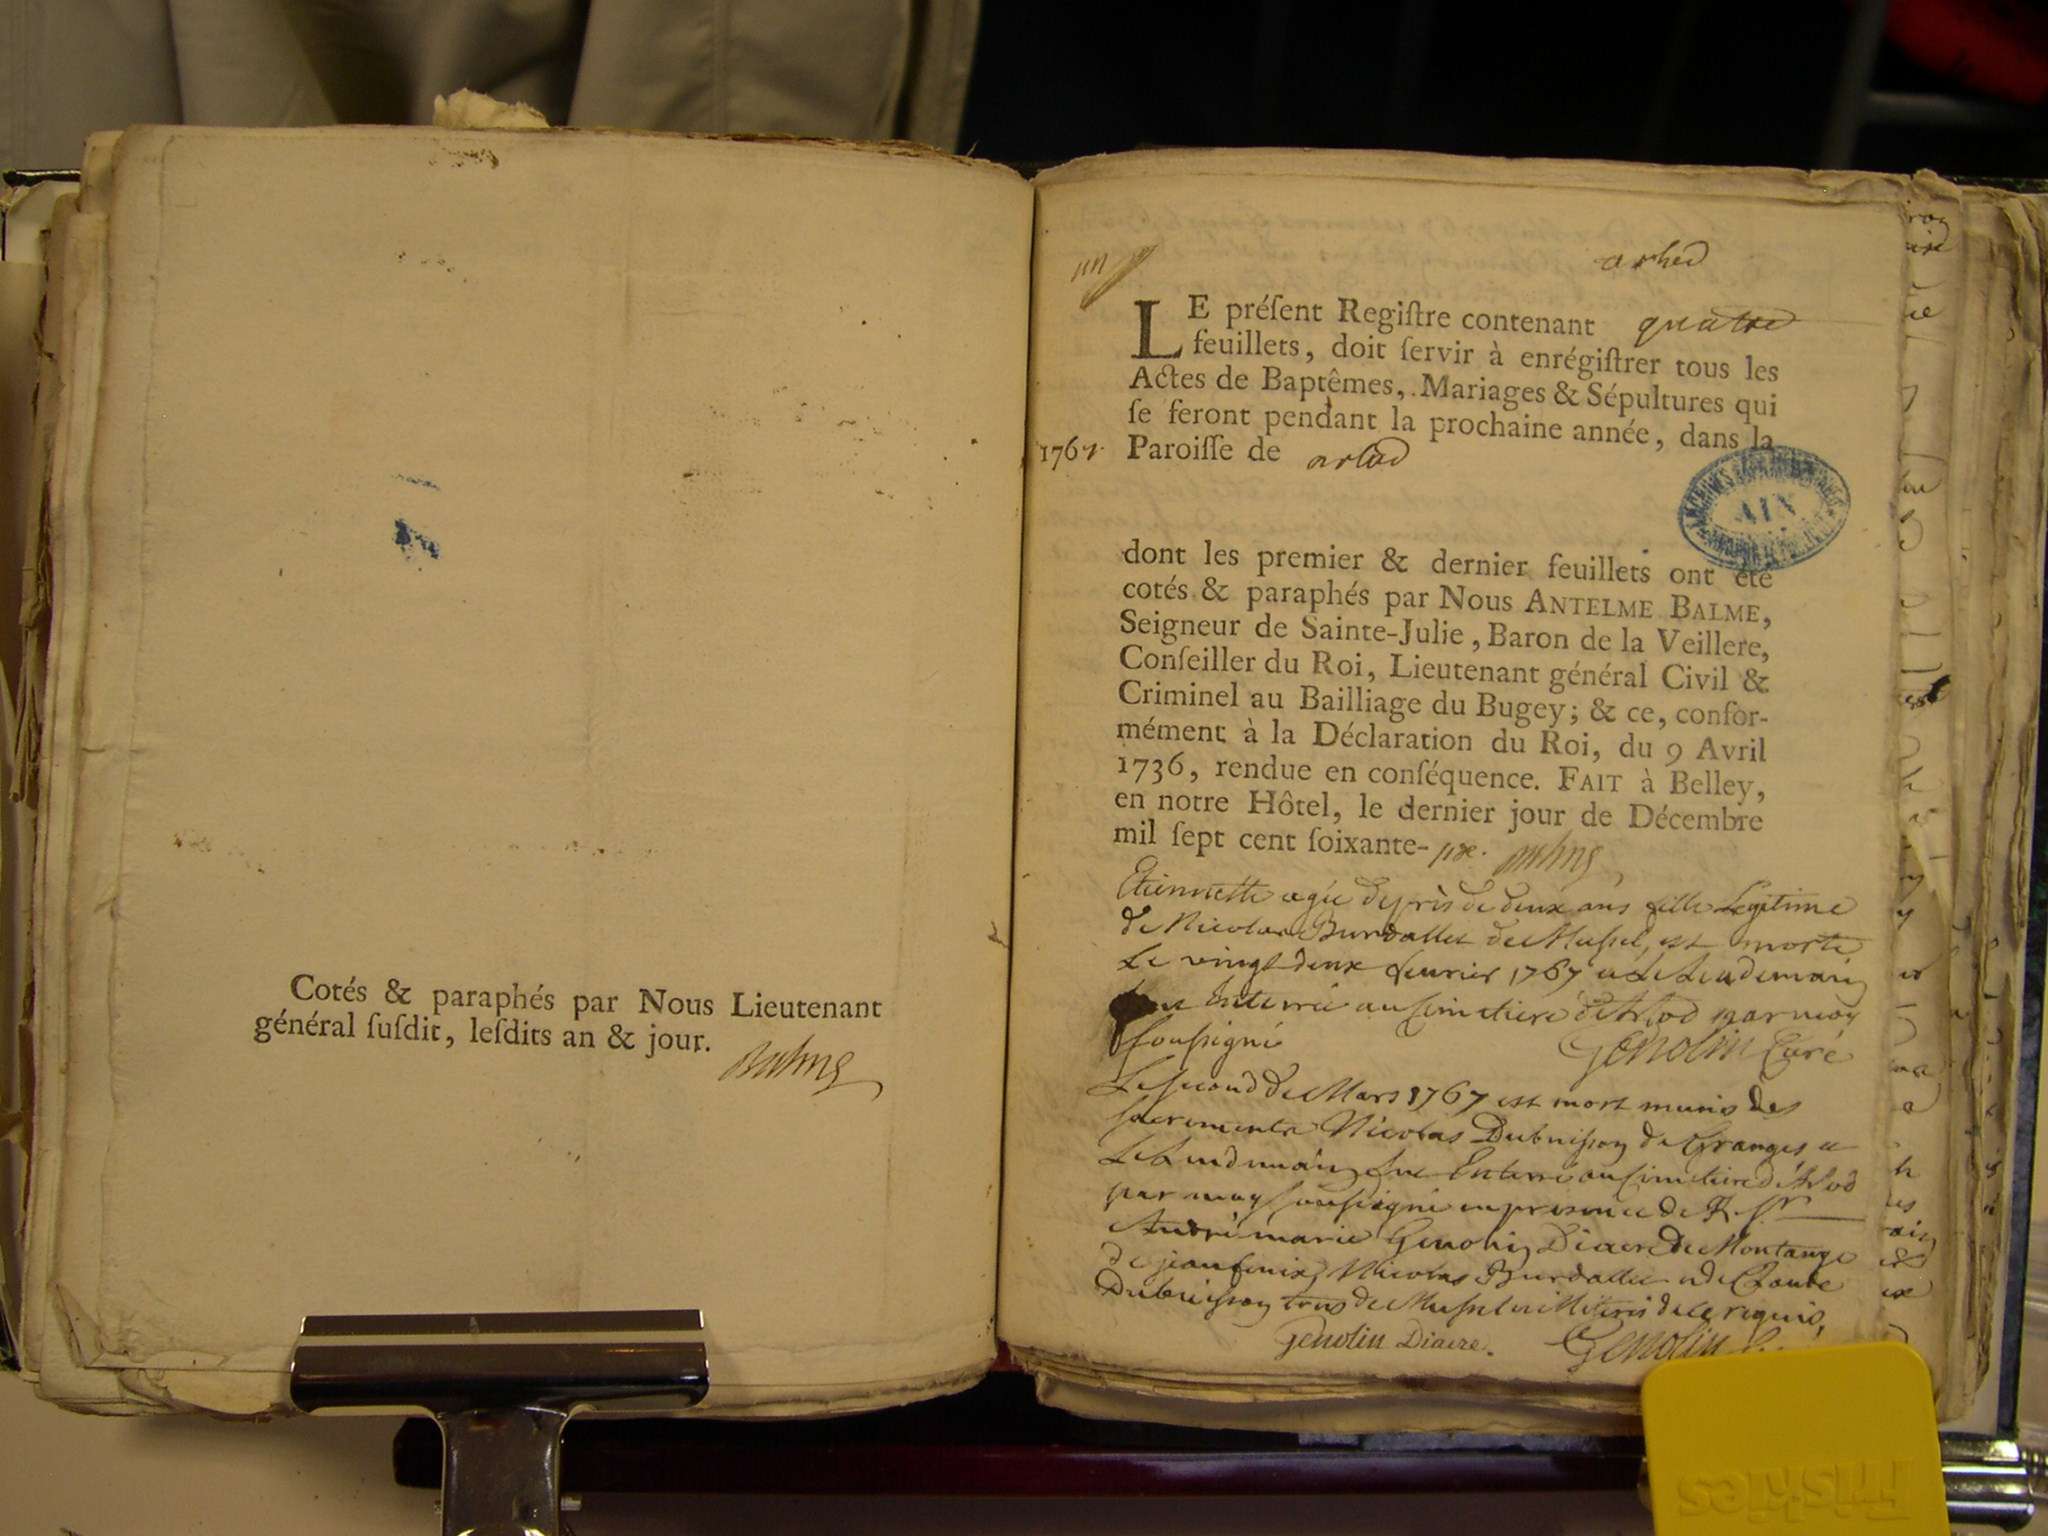 Cotés & paraphés par Nous Lieutenant
général suſdit, leſdits an & jour.
arled
LE préſent Regiſtre contenant quatre
feuillets, doit ſervir à enrégiſtrer tous les
Actes de Baptêmes, Mariages & Sépultures qui
ſe feront pendant la prochaine année, dans la
1767. Paroiſſe de arlod
AIN
dont les premier & dernier feuillets ont été
cotés & paraphés par Nous ANTELME BALME,
Seigneur de Sainte-Julie, Baron de la Veillere,
Conſeiller du Roi, Lieutenant général Civil &
Criminel au Bailliage du Bugey; & ce, confor-
mément à la Déclaration du Roi, du 9 Avril
1736, rendue en conſéquence. FAIT à Belley,
en notre Hôtel, le dernier jour de Décembre
mil ſept cent ſoixante-six.
Etiennette agée deprès de deux ans fille Legitime
de Nicolas Burdallet de Mussel, est morte
Le vingt deux feurier 1767 et Le Lendemain
enterrée au Cimetiere d'Arlod par moy
soussigné Genolin Curé
Le second de Mars 1767 est mort munis des
sacrements Nicolas Dubuisson de Granges et
Le Lendemain fut Enterré au Cimetiere d'Arlod
par moy soussigné en presence de R. Sr
André marie Genolin Diacre de Montange
de jean Burdallet et de Claude
Dubuisson tous de Mussel requis,
Genolin Diacre. Genolin
Friskies